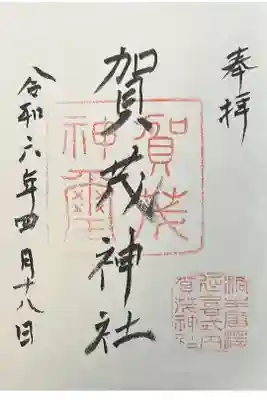 奉拝
賀茂神社
令和六年四月十八日
賀茂
神璽
延喜式内
賀茂神社